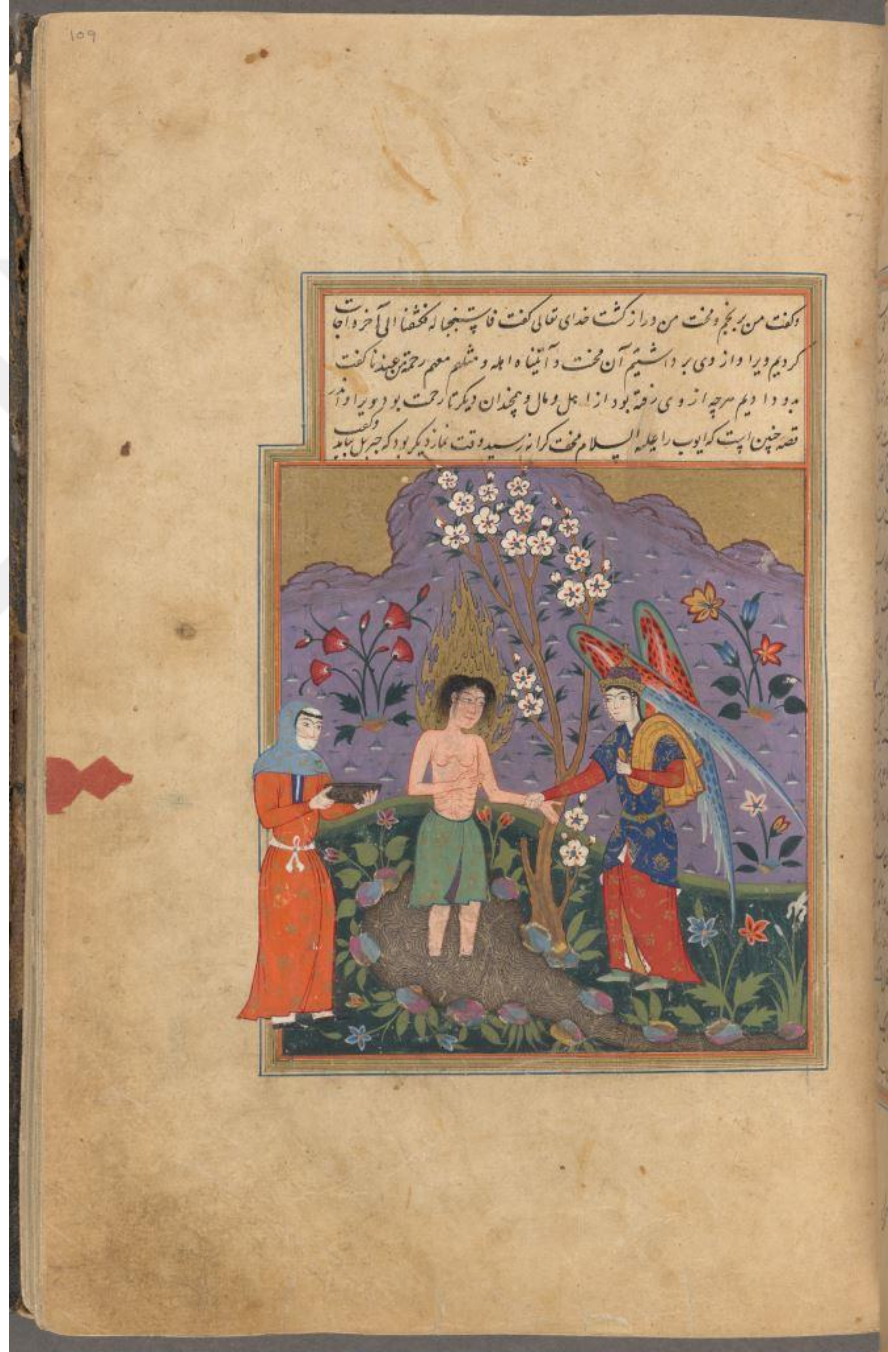 109
وکفت من برنجم و محنت من دراز کشت خدای تعالی کفت فاستجبنا له فکشفنا الی آخره اجابت
کردیم ویرا و از وی بر داشتیم آن محنت و آتیناه اهله و مثلهم معهم رحمة من عندنا کفت
بدو دادیم هرچه از وی رفته بود از اهل و مال و همچندان دیکر تا رحمت بود ویرا و اندر
قصه چنین است که ایوب را علیه السلام محنت کرانه رسید وقت نماز دیکر بود که جبریل بیامد وکفت